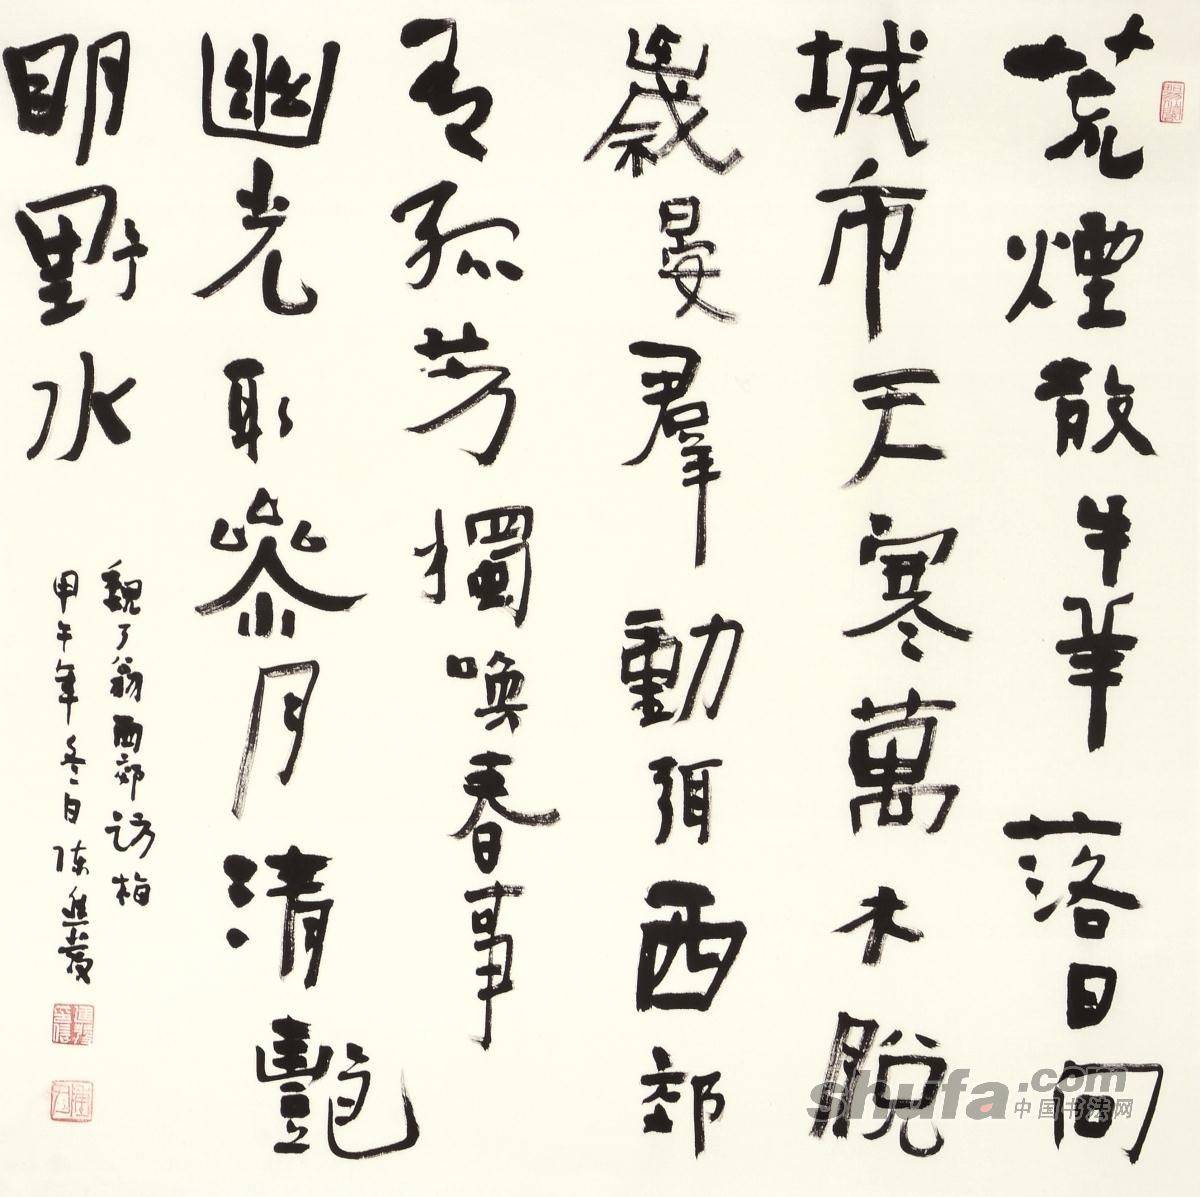 荒煙散牛羊落日向
城市天寒萬木脫
歲晏羣動弭西郊
有孤芳獨喚春事
幽光耿參月清艷
明野水
魏了翁西郊訪梅
甲午年冬日陳進
shufa.com
中国书法网